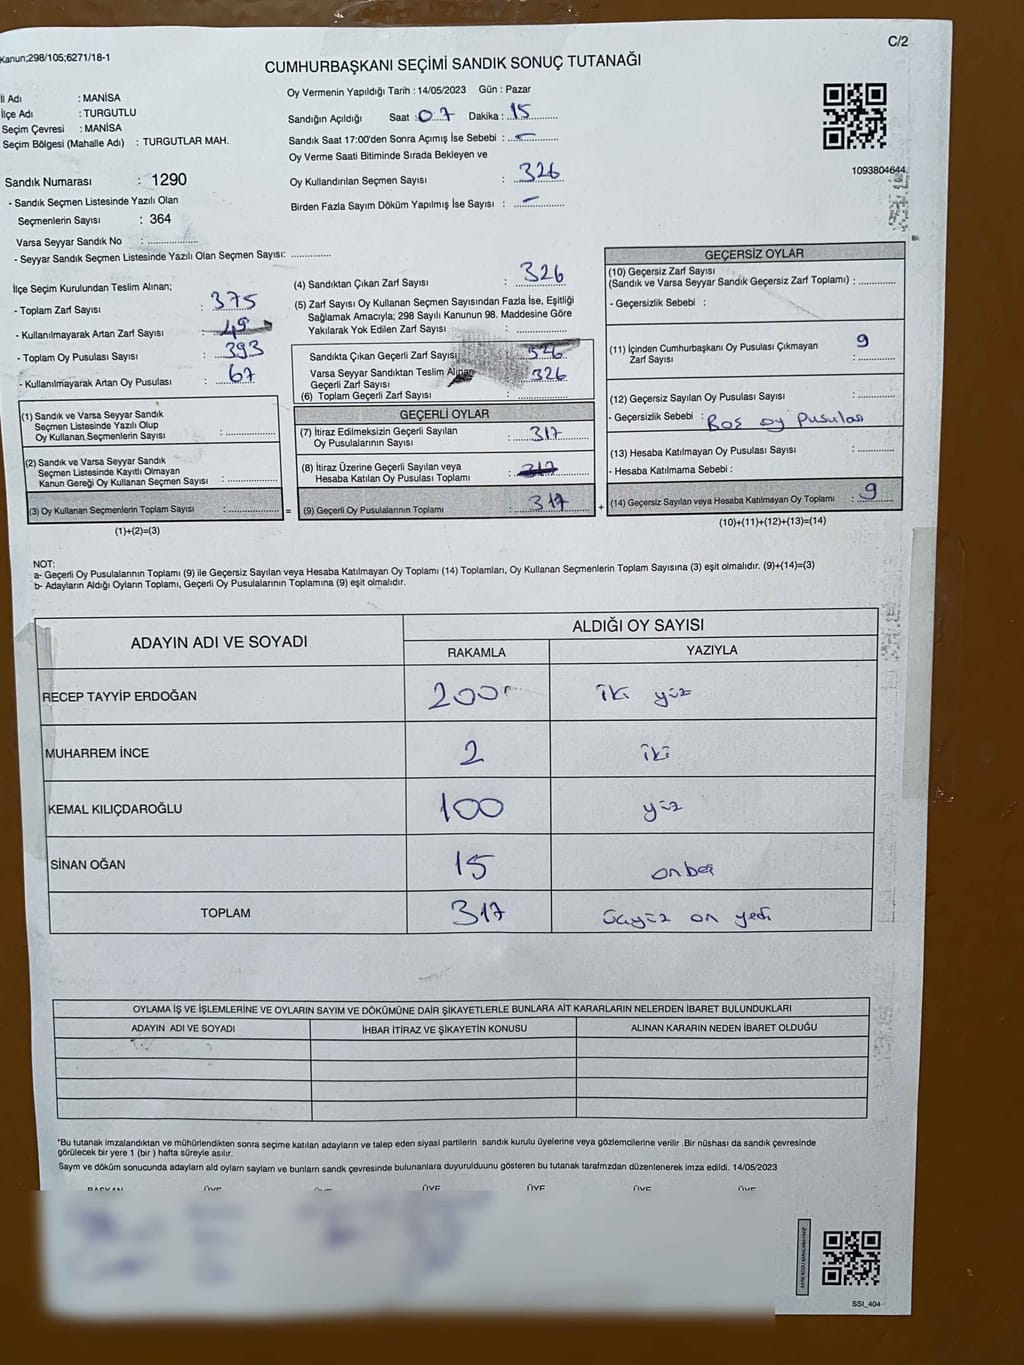 Kanun;298/105;6271/18-1
C/2
CUMHURBAŞKANI SEÇİMİ SANDIK SONUÇ TUTANAĞI
İl Adı : MANİSA
İlçe Adı : TURGUTLU
Seçim Çevresi : MANİSA
Seçim Bölgesi (Mahalle Adı) : TURGUTLAR MAH.
Sandık Numarası : 1290
- Sandık Seçmen Listesinde Yazılı Olan
Seçmenlerin Sayısı : 364
Varsa Seyyar Sandık No : ..................
- Seyyar Sandık Seçmen Listesinde Yazılı Olan Seçmen Sayısı: ..............
Oy Vermenin Yapıldığı Tarih : 14/05/2023 Gün : Pazar
Sandığın Açıldığı Saat : 07 Dakika : 15
Sandık Saat 17:00'den Sonra Açımış İse Sebebi : -
Oy Verme Saati Bitiminde Sırada Bekleyen ve
Oy Kullandırılan Seçmen Sayısı : 326
Birden Fazla Sayım Döküm Yapılmış İse Sayısı : -
1093804644
İlçe Seçim Kurulundan Teslim Alınan;
- Toplam Zarf Sayısı : 375
- Kullanılmayarak Artan Zarf Sayısı : 49
- Toplam Oy Pusulası Sayısı : 393
- Kullanılmayarak Artan Oy Pusulası : 67
(1) Sandık ve Varsa Seyyar Sandık
Seçmen Listesinde Yazılı Olup
Oy Kullanan Seçmenlerin Sayısı : ..................
(2) Sandık ve Varsa Seyyar Sandık
Seçmen Listesinde Kayıtlı Olmayan
Kanun Gereği Oy Kullanan Seçmen Sayısı : ..................
(3) Oy Kullanan Seçmenlerin Toplam Sayısı : .................. =
(1)+(2)=(3)
(4) Sandıktan Çıkan Zarf Sayısı : 326
(5) Zarf Sayısı Oy Kullanan Seçmen Sayısından Fazla İse, Eşitliği
Sağlamak Amacıyla; 298 Sayılı Kanunun 98. Maddesine Göre
Yakılarak Yok Edilen Zarf Sayısı : ..................
Sandıkta Çıkan Geçerli Zarf Sayısı 326
Varsa Seyyar Sandıktan Teslim Alınan
Geçerli Zarf Sayısı 326
(6) Toplam Geçerli Zarf Sayısı : ..................
GEÇERLİ OYLAR
(7) İtiraz Edilmeksizin Geçerli Sayılan
Oy Pusulalarının Sayısı : 317
(8) İtiraz Üzerine Geçerli Sayılan veya
Hesaba Katılan Oy Pusulası Toplamı : 317
(9) Geçerli Oy Pusulalarının Toplamı : 317 +
GEÇERSİZ OYLAR
(10) Geçersiz Zarf Sayısı
(Sandık ve Varsa Seyyar Sandık Geçersiz Zarf Toplamı) : .............
- Geçersizlik Sebebi :
(11) İçinden Cumhurbaşkanı Oy Pusulası Çıkmayan
Zarf Sayısı : 9
(12) Geçersiz Sayılan Oy Pusulası Sayısı : .............
- Geçersizlik Sebebi : Boş oy pusulası
(13) Hesaba Katılmayan Oy Pusulası Sayısı : .............
- Hesaba Katılmama Sebebi :
(14) Geçersiz Sayılan veya Hesaba Katılmayan Oy Toplamı : 9
(10)+(11)+(12)+(13)=(14)
NOT:
a- Geçerli Oy Pusulalarının Toplamı (9) ile Geçersiz Sayılan veya Hesaba Katılmayan Oy Toplamı (14) Toplamları, Oy Kullanan Seçmenlerin Toplam Sayısına (3) eşit olmalıdır. (9)+(14)=(3)
b- Adayların Aldığı Oyların Toplamı, Geçerli Oy Pusulalarının Toplamına (9) eşit olmalıdır.
ADAYIN ADI VE SOYADI
ALDIĞI OY SAYISI
RAKAMLA YAZIYLA
RECEP TAYYİP ERDOĞAN 200 iki yüz
MUHARREM İNCE 2 iki
KEMAL KILIÇDAROĞLU 100 yüz
SİNAN OĞAN 15 onbeş
TOPLAM 317 üçyüz on yedi
OYLAMA İŞ VE İŞLEMLERİNE VE OYLARIN SAYIM VE DÖKÜMÜNE DAİR ŞİKAYETLERLE BUNLARA AİT KARARLARIN NELERDEN İBARET BULUNDUKLARI
ADAYIN ADI VE SOYADI İHBAR İTİRAZ VE ŞİKAYETİN KONUSU ALINAN KARARIN NEDEN İBARET OLDUĞU
*Bu tutanak imzalandıktan ve mühürlendikten sonra seçime katılan adayların ve talep eden siyasi partilerin sandık kurulu üyelerine veya gözlemcilerine verilir .Bir nüshası da sandık çevresinde
görülecek bir yere 1 (bir ) hafta süreyle asılır.
Sayım ve döküm sonucunda adaylarn ald oylarn saylarn ve bunlarn sandk çevresinde bulunanlara duyurulduunu gösteren bu tutanak tarafmzdan düzenlenerek imza edildi. 14/05/2023
BAŞKAN ÜYE ÜYE ÜYE ÜYE ÜYE ÜYE
SSI_404